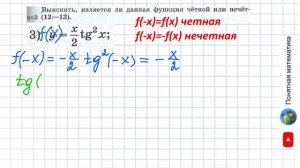 Выяснить, является ли данная функция чётной или нечёт-
ной (12—13).
f(-x)=f(x) четная
f(-x)=-f(x) нечетная
3) f(x) = x/2 tg² x;
f(-x) = -x/2 tg²(-x) = -x/2
tg(
Понятная математика